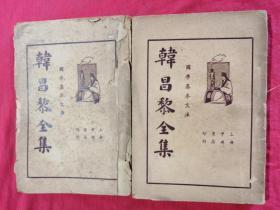 韓昌黎全集
國學基本文庫
韓昌黎全集
國學基本文庫